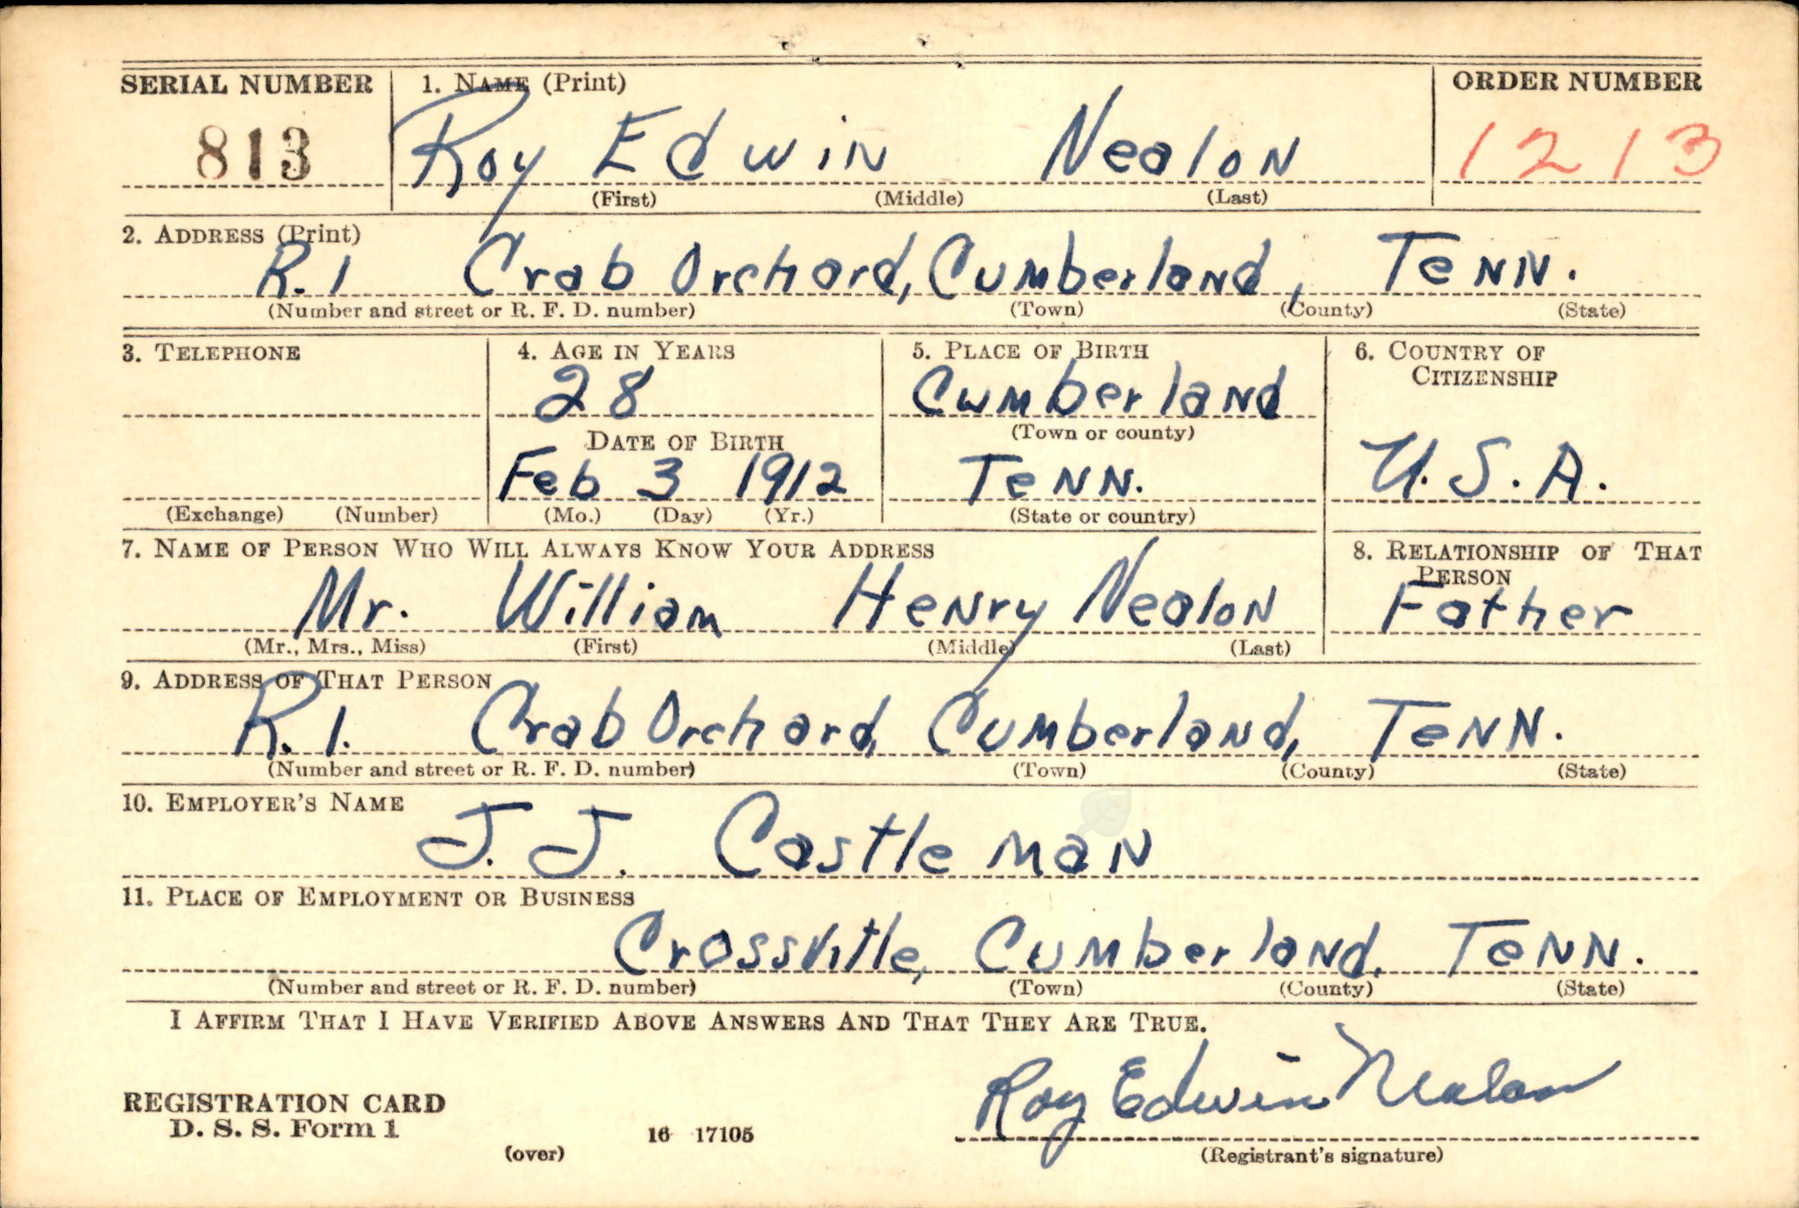 SERIAL NUMBER 1. NAME (Print) ORDER NUMBER
813 Roy Edwin Nealon 1213
(First) (Middle) (Last)
2. ADDRESS (Print)
R.1 Crab Orchard, Cumberland, Tenn.
(Number and street or R. F. D. number) (Town) (County) (State)
3. TELEPHONE 4. AGE IN YEARS 5. PLACE OF BIRTH 6. COUNTRY OF
CITIZENSHIP
28 Cumberland
DATE OF BIRTH (Town or county)
Feb 3 1912 Tenn. U.S.A.
(Exchange) (Number) (Mo.) (Day) (Yr.) (State or country)
7. NAME OF PERSON WHO WILL ALWAYS KNOW YOUR ADDRESS 8. RELATIONSHIP OF THAT
PERSON
Mr. William Henry Nealon Father
(Mr., Mrs., Miss) (First) (Middle) (Last)
9. ADDRESS OF THAT PERSON
R.1. Crab Orchard, Cumberland, Tenn.
(Number and street or R. F. D. number) (Town) (County) (State)
10. EMPLOYER'S NAME
J. J. Castleman
11. PLACE OF EMPLOYMENT OR BUSINESS
Crossville, Cumberland, Tenn.
(Number and street or R. F. D. number) (Town) (County) (State)
I AFFIRM THAT I HAVE VERIFIED ABOVE ANSWERS AND THAT THEY ARE TRUE.
Roy Edwin Nealon
REGISTRATION CARD
D. S. S. Form 1 16 17105
(over) (Registrant's signature)